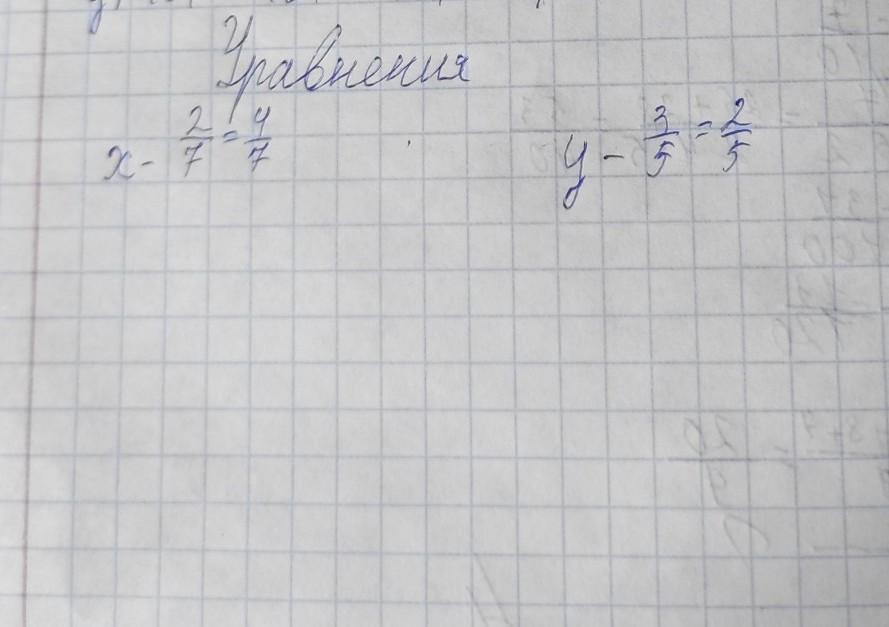 Уравнения
x - 2/7 = 4/7
y - 3/5 = 2/5